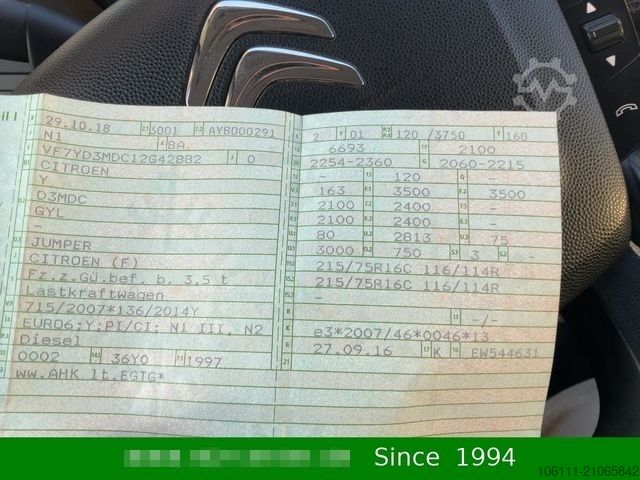 29.10.18 2.1 3001 2.2 AYB000291
N1 4 BA
VF7YD3MDC12G42882 3 0
CITROEN
Y
D3MDC
GYL
-
JUMPER
CITROEN (F)
Fz.z.Gü.bef. b. 3,5 t
Lastkraftwagen
715/2007*136/2014Y
EURO6;Y;PI/CI; N1 III, N2
Diesel
0002 14.1 36Y0 P.1 1997
ww.AHK lt.EGTG*
L 2 9 01 P.2 P.4 120 /3750 T 160
18 6693 19 2100
20 2254-2360 G 2060-2215
- 13 120 Q -
V.7 163 F.1 3500 F.2 3500
7.1 2100 7.2 2400 7.3 -
8.1 2100 8.2 2400 8.3 -
U.1 80 U.2 2813 U.3 75
O.1 3000 O.2 750 S.1 3 S.2 -
15.1 215/75R16C 116/114R
15.2 215/75R16C 116/114R
15.3 -
R 11 -/-
K e3*2007/46*0046*13
6 27.09.16 17 K 16 EW544631
21
Since 1994
106111-21065842